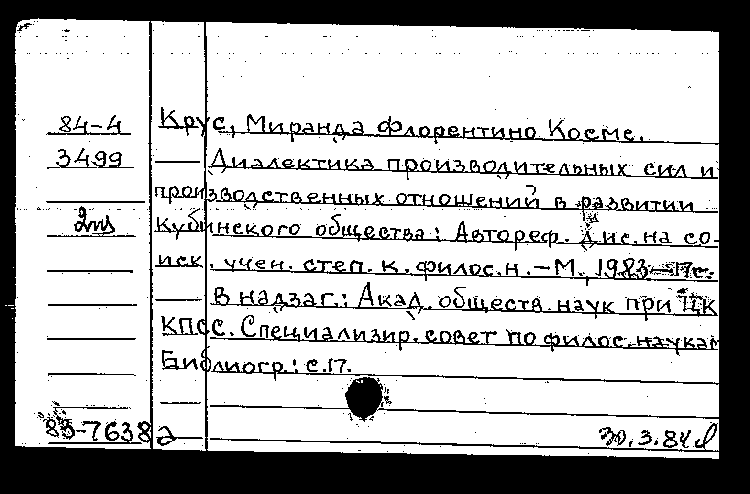 84-4 Крус, Миранда Флорентино Косме.
3499 Диалектика производительных сил и
производственных отношений в развитии
2пб Кубинского общества: Автореф. Дис. на со-
иск. учен. степ. к. филос. н. – М., 1983 – 17с.
В надзаг.: Акад. обществ. наук при ЦК
КПСС. Специализир. совет по филос. наукам
Библиогр.: с. 17.
83-7638а 30.3.84